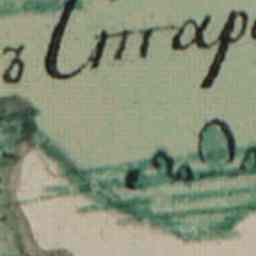 ъ Стар